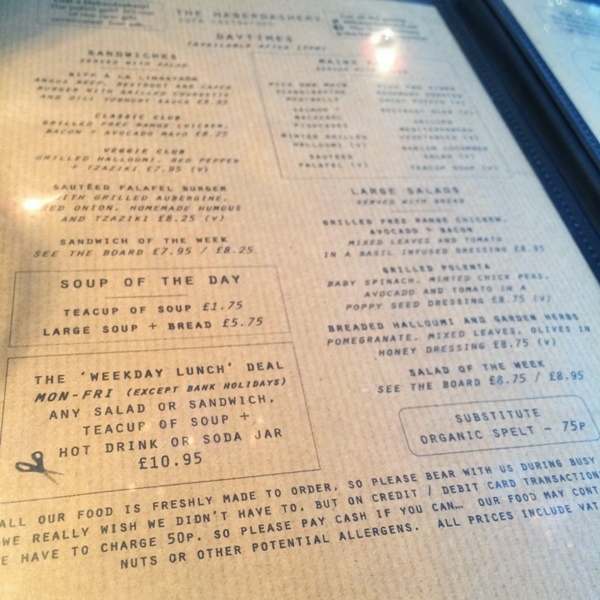 THE HABERDASHERY
DAYTIMES
(AVAILABLE AFTER
SANDWICHES
SERVED WITH SALAD
BIFF A LA LINDSTRÖM
ANGUS BEEF, BEETROOT AND CAPER
BURGER WITH GRILLED COURGETTE
AND DILL YOGHURT SAUCE £8.95
CLASSIC CLUB
GRILLED FREE RANGE CHICKEN,
BACON + AVOCADO MAYO £8.25
VEGGIE CLUB
GRILLED HALLOUMI, RED PEPPER
+ TZAZIKI £7.95 (V)
SAUTÉED FALAFEL BURGER
WITH GRILLED AUBERGINE,
RED ONION, HOMEMADE HUMOUS
AND TZAZIKI £8.25 (V)
SANDWICH OF THE WEEK
SEE THE BOARD £7.95 / £8.25
SOUP OF THE DAY
TEACUP OF SOUP £1.75
LARGE SOUP + BREAD £5.75
THE 'WEEKDAY LUNCH' DEAL
MON-FRI (EXCEPT BANK HOLIDAYS)
ANY SALAD OR SANDWICH,
TEACUP OF SOUP +
HOT DRINK OR SODA JAR
£10.95
PICK ONE MAIN
MEATBALLS
SALMON +
MACKEREL
FISHCAKES
MINTED GRILLED
HALLOUMI (V)
SAUTÉED
FALAFEL (V)
PICK TWO SIDES
GRILLED
MEDITERRANEAN
VEGETABLES (V)
DANISH CUCUMBER
SALAD (V)
TEACUP SOUP (V)
LARGE SALADS
SERVED WITH BREAD
GRILLED FREE RANGE CHICKEN,
AVOCADO + BACON
MIXED LEAVES AND TOMATO
IN A BASIL INFUSED DRESSING £8.95
GRILLED POLENTA
BABY SPINACH, MINTED CHICK PEAS,
AVOCADO AND TOMATO IN A
POPPY SEED DRESSING £8.75 (V)
BREADED HALLOUMI AND GARDEN HERBS
POMEGRANATE, MIXED LEAVES, OLIVES IN
HONEY DRESSING £8.75 (V)
SALAD OF THE WEEK
SEE THE BOARD £8.75 / £8.95
SUBSTITUTE
ORGANIC SPELT - 75P
ALL OUR FOOD IS FRESHLY MADE TO ORDER, SO PLEASE BEAR WITH US DURING BUSY
WE REALLY WISH WE DIDN'T HAVE TO, BUT ON CREDIT / DEBIT CARD TRANSACTIONS
E HAVE TO CHARGE 50P. SO PLEASE PAY CASH IF YOU CAN... OUR FOOD MAY CONT
NUTS OR OTHER POTENTIAL ALLERGENS. ALL PRICES INCLUDE VAT